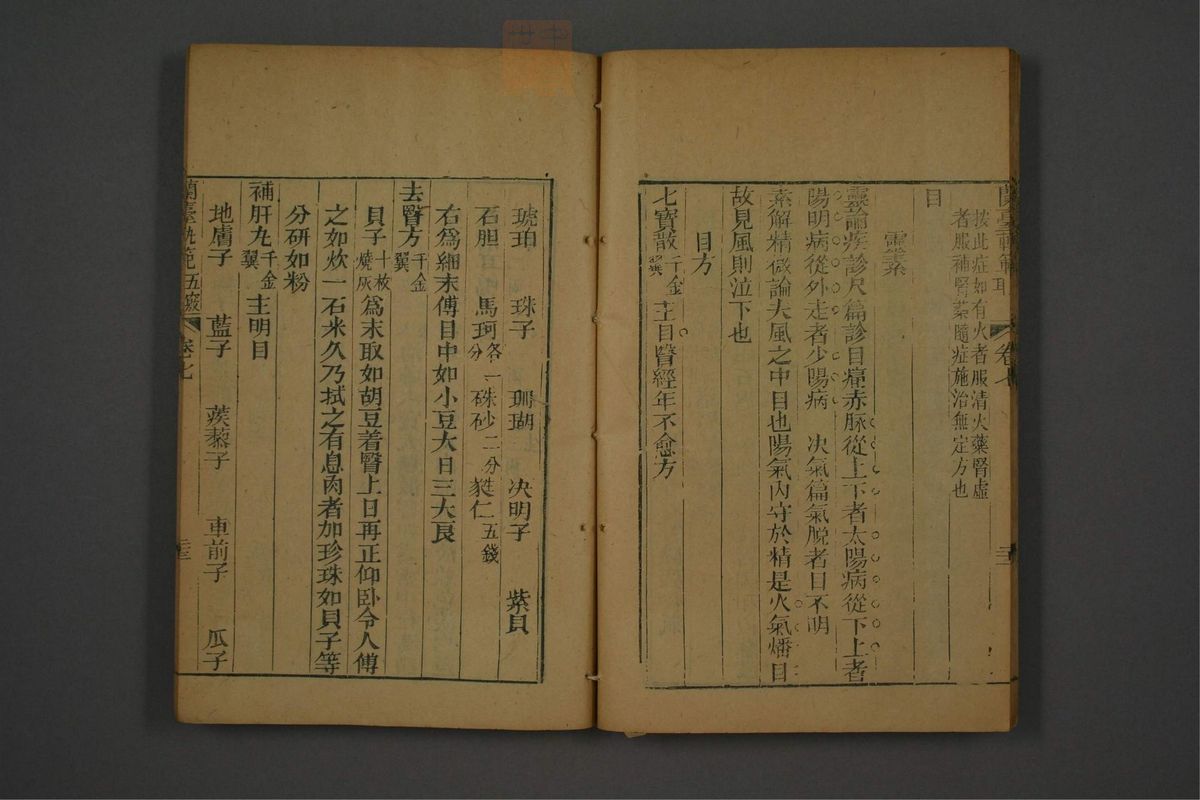 蘭臺軌範 耳 卷七
按此症如有火者服清火藥腎虛
者服補腎藥隨症施治無定方也
目
靈素
靈論疾診尺篇診目痛赤脈從上下者太陽病從下上者
陽明病從外走者少陽病 決氣篇氣脫者目不明
素解精微論夫風之中目也陽氣內守於精是火氣燔目
故見風則泣下也
目方
七寶散千金翼 主目瞖經年不愈方
琥珀 珠子 珊瑚 决明子 紫貝
石胆 馬珂各一分 硃砂二分 蕤仁五錢
右爲細末傅目中如小豆大日三大良
去瞖方千金翼
貝子十枚燒灰 爲末取如胡豆着瞖上日再正仰卧令人傅
之如炊一石米久乃拭之有息肉者加珍珠如貝子等
分研如粉
補肝丸千金翼 主明目
地膚子 藍子 蒺藜子 車前子 瓜子
蘭臺軌範 卷七